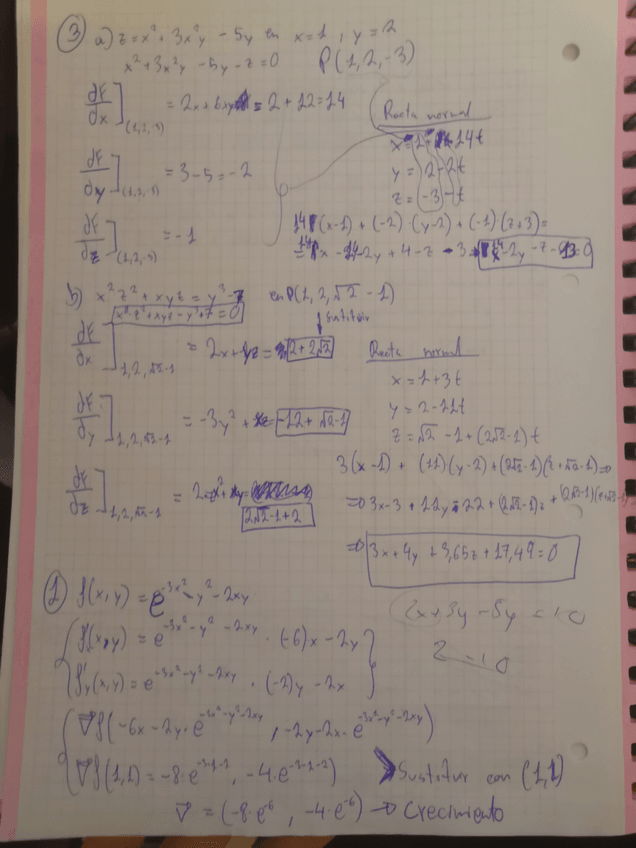 ③ a) z = x² + 3x²y - 5y en x=1, y=2
x² + 3x²y - 5y - z = 0 P(1, 2, -3)
dF/dx](1,2,-3) = 2x + 6xy = 2 + 12 = 14
Recta normal
x = 1 + 14t
dF/dy](1,2,-3) = 3 - 5 = -2
y = 2 - 2t
z = -3 - t
dF/dz](1,2,-3) = -1
14(x-1) + (-2)(y-2) + (-1)(z+3) =
= 14x - 14 - 2y + 4 - z - 3
b) x²z² + xyz = y³ - 7 en P(1, 2, √2 - 1)
x²z² + xyz - y³ + 7 = 0
sustituir
dF/dx]1,2,√2-1 = 2x + yz = 2 + 2√2
Recta normal
x = 1 + 3t
dF/dy]1,2,√2-1 = -3y² + xz = -12 + √2 - 1
y = 2 - 11t
z = √2 - 1 + (2√2 - 1)t
3(x-1) + (11)(y-2) + (2√2-1)(z+√2-1)=0
dF/dz]1,2,√2-1
2√2 - 1 + 2
3x + 4y + 3,65z + 17,49 = 0
① f(x,y) = e^-3x² - y² - 2xy
f'x(x,y) = e^-3x² - y² - 2xy · (-6)x - 2y
f'y(x,y) = e^-3x² - y² - 2xy · (-2)y - 2x
∇f(-6x - 2y · e^-3x²-y²-2xy, -2y - 2x · e^-3x²-y²-2xy)
∇f(1,1) = -8·e^-3-1-2, -4·e^-3-1-2) Sustituir con (1,1)
∇ = (-8·e^-6, -4·e^-6) → Crecimiento